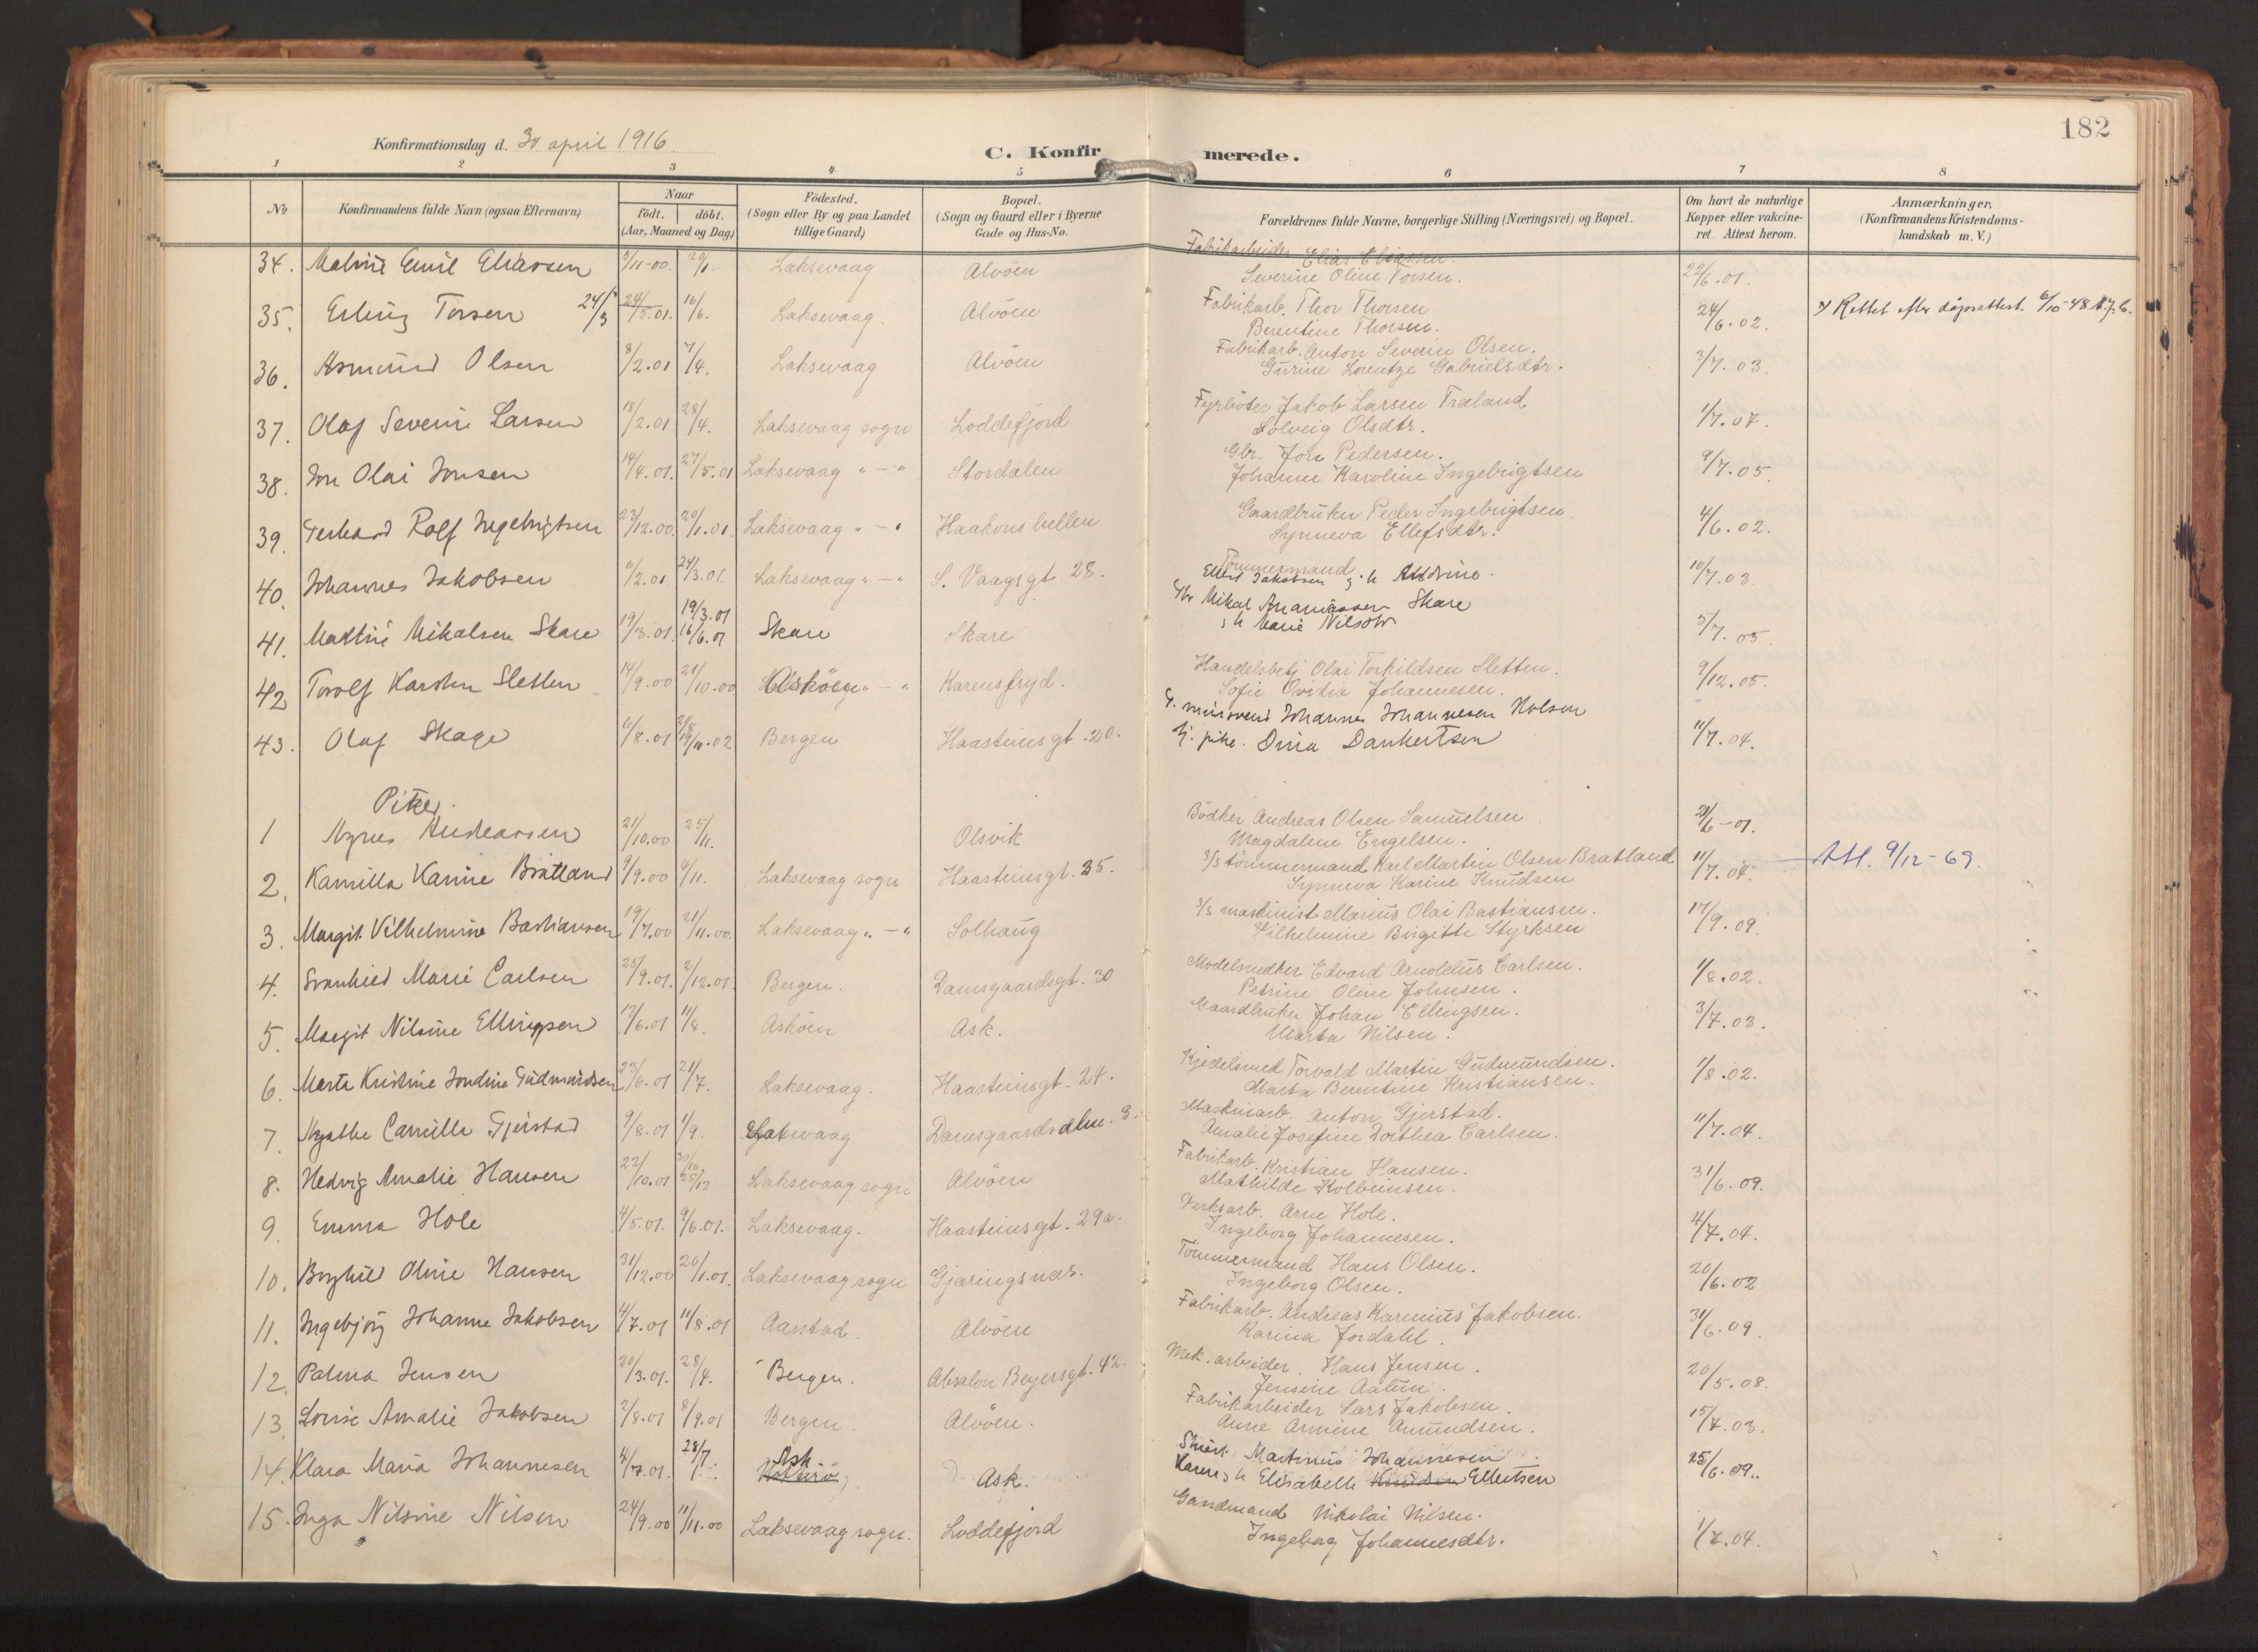 182
Konfirmationsdag d. 30 april 1916.
C. Konfirmerede.
1 2 3 4 5 6 7 8
No
Konfirmandens fulde Navn (ogsaa Efternavn)
Naar
födt. döbt.
(Aar, Maaned og Dag)
Födested.
(Sogn eller By og paa Landet
tillige Gaard)
Bopæl.
(Sogn og Gaard eller i Byerne
Gade og Hus-No.
Forældrenes fulde Navne, borgerlige Stilling (Næringsvei) og Bopæl.
Om havt de naturlige
Kopper eller vakcine-
ret. Attest herom.
Anmærkninger.
(Konfirmandens Kristendoms-
kundskab m. V.)
Fabrikarbeider Elias Eliassen.
34. Malvin Emil Eliassen 5/11-00. 20/1. Laksevaag Alvöen Severine Oline Torsen. 22/6.01.
Fabrikarb. Thor Thorsen
35. Erling Torsen 24/3 24/5.01. 16/6. Laksevaag. Alvöen Berentine Thorsen. 24/6.02. Rettet efter dåpsattest. 6/10-48
Fabrikarb. Anton Severin Olsen.
36. Asmund Olsen 8/2.01 7/4. Laksevaag Alvöen Gurine Lorentze Gabrielsdtr. 3/7.03.
Fyrböter Jakob Larsen Træland
37. Olaf Severin Larsen 18/2.01 28/4. Laksevaag sogn Loddefjord Solveig Olsdtr. 1/7.07.
Gbr. Jon Pedersen.
38. Jon Olai Jonsen 14/4.01. 27/5.01 Laksevaag " — " Stordalen Johanne Karoline Ingebrigtsen 9/7.05.
Gaardbruker Peder Ingebrigtsen.
39. Gerhard Rolf Ingebrigtsen 23/12.00. 20/1.01. Laksevaag " — " Haakonshellen Synneva Ellefsdtr. 4/6.02.
Tömmermand
40. Johannes Jakobsen 6/2.01. 24/3.01. Laksevaag " — " S. Vaagsgt. 28. Ellert Jakobsen g. h. 10/7.03.
Gbr Mikal Ananiassen Skare
19/3.01
41. Martin Mikalsen Skare 19/3.01. 16/6.01 Skare Skare g h Marie Nilsdtr 5/7.05
Handelsbetj Olai Torkildsen Sletten.
42 Torolf Karsten Sletten 14/9.00 21/10.00 Asköen " — " Karensfryd. Sofie Ovidia Johannesen. 9/12.05.
G. mursvend Johannes Johannesen Holsen
43. Olaf Skage 6/8.01 Bergen Haasteinsgt. 20. Gj. pike. Dina Dankertsen 11/7.04.
Piker.
Bödker Andreas Olsen Samuelsen
1 Agnes Andreassen 21/10.00 25/11. Olsvik Magdalene Engelsen. 21/6-01.
D/S tömmermand Karl Martin Olsen Bratland
2. Kamilla Karine Bratland 9/9.00 4/11. Laksevaag sogn Haasteinsgt. 35. Synneva Karine Knudsen 11/7.04. Att. 9/12-69.
D/S maskinist Marius Olai Bastiansen.
3. Margit Vilhelmine Bastiansen 19/7.00 21/11.00. Laksevaag " — " Solhaug Vilhelmine Birgitte Styrksen 17/9.09.
Modelsnedker Edvard Arnoldus Carlsen.
4. Svanhild Marie Carlsen 25/9.01. 2/12.01. Bergen. Damsgaardsgt. 30 Petrine Oline Johnsen. 1/8.02.
Gaardbruker Johan Ellingsen.
5. Margit Nilsine Ellingsen 13/6.01 11/8. Asköen Ask. Marta Nilsen. 3/7.03.
Kjedelsmed Torvald Martin Gudmundsen.
6. Marta Kristine Jondine Gudmundsen 23/6.01 21/7. Laksevaag. Haasteinsgt. 24. Marta Berentine Kristiansen. 1/8.02.
Maskinarb. Anton Gjerstad.
7. Agathe Camilla Gjerstad 9/8.01 1/9. Laksevaag Damsgaardsalm. 3. Amalie Josefine Dorthea Carlsen. 11/7.04.
Fabrikarb. Kristian Hansen.
8. Hedvig Amalie Hansen 22/10.01 30/10 25/12 Laksevaag sogn Alvöen Mathilde Kolbeinsen. 31/6.09.
Verksarb. Arne Hole.
9. Emma Hole 4/5.01. 9/6.01. Laksevaag. Haasteinsgt. 29a. Ingeborg Johannesen. 4/7.04.
Tömmermand Hans Olsen.
10. Borghild Oline Hansen 31/12.00 20/1.01. Laksevaag sogn Gjæringsnæs. Ingeborg Olsen. 20/6.02
Fabrikarb. Andreas Karenius Jakobsen.
11. Ingebjörg Johanne Jakobsen 4/7.01 11/8.01 Aarstad. Alvöen Karina Jordahl. 31/6.09.
Mek. arbeider. Hans Jensen.
12. Palma Jensen 20/3.01. 28/4. Bergen. Absalon Beyersgt. 42. Jensine Aatun. 20/5.08.
Fabrikarbeider Lars Jakobsen.
13. Lovise Amalie Jakobsen 2/8.01 8/9.01 Bergen Alvöen. Anne Armine Amundsen. 15/7.03.
Martinus Johannesen
14. Klara Maria Johannesen 4/7.01. 28/7 Ask Ask. Karen g h Elisabeth Knudsen Ellertsen 25/6.09.
Gaardmand Nikolai Nilsen.
15. Inga Nilsine Nilsen 24/9.00 11/11.00 Laksevaag sogn. Loddefjord Ingeborg Johannesdtr. 1/7.04.